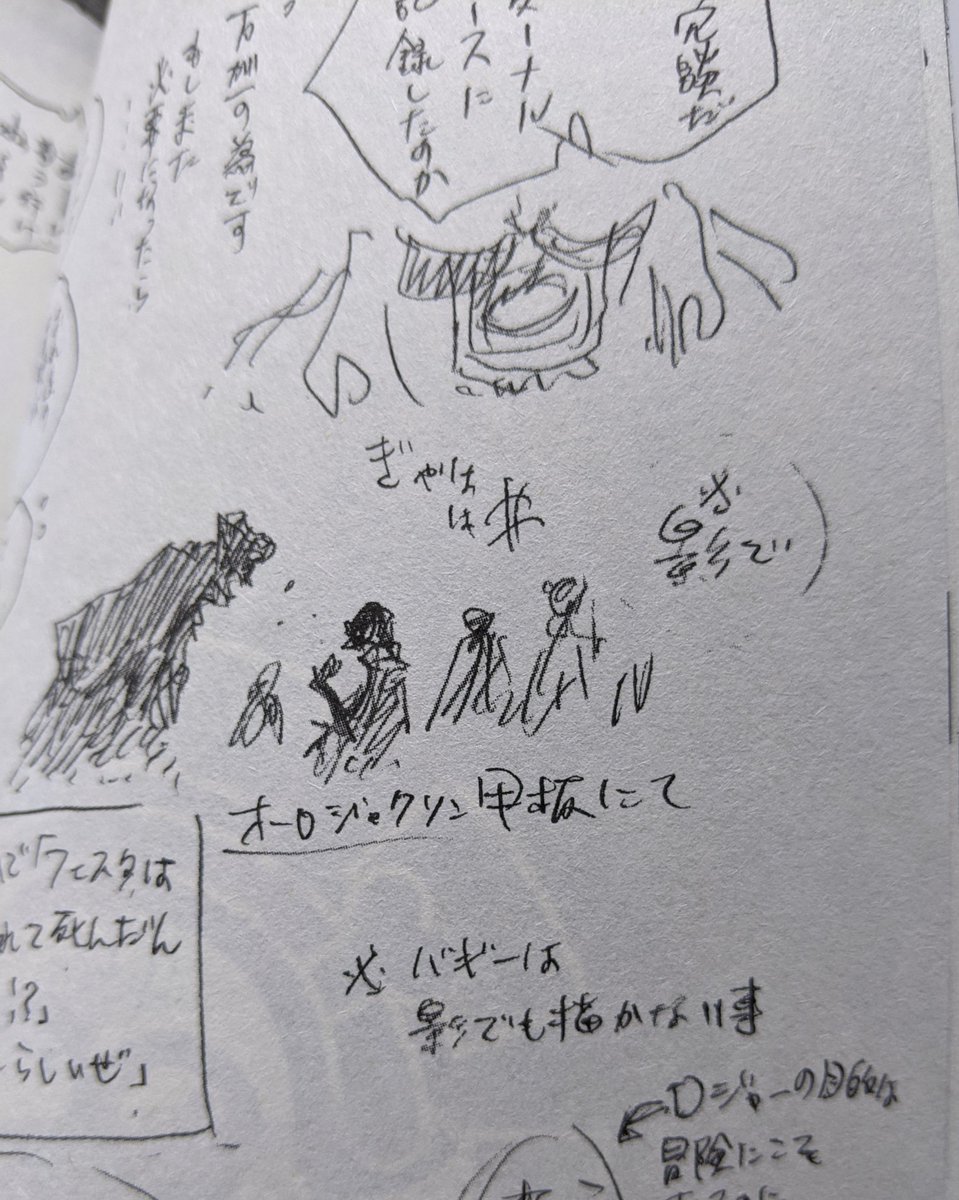 冒険だ
ターナル
ースに
記録したのか
万が一の為です
もしまた
必要になったら
‥‥!!
ぎゃはは
は
※影で
オーロジャクソン甲板にて
で「フェスタは
れて死んだん
!?」
らしいぜ」
※バギーは
影でも描かない事
ロジャーの目的は
冒険にこそ